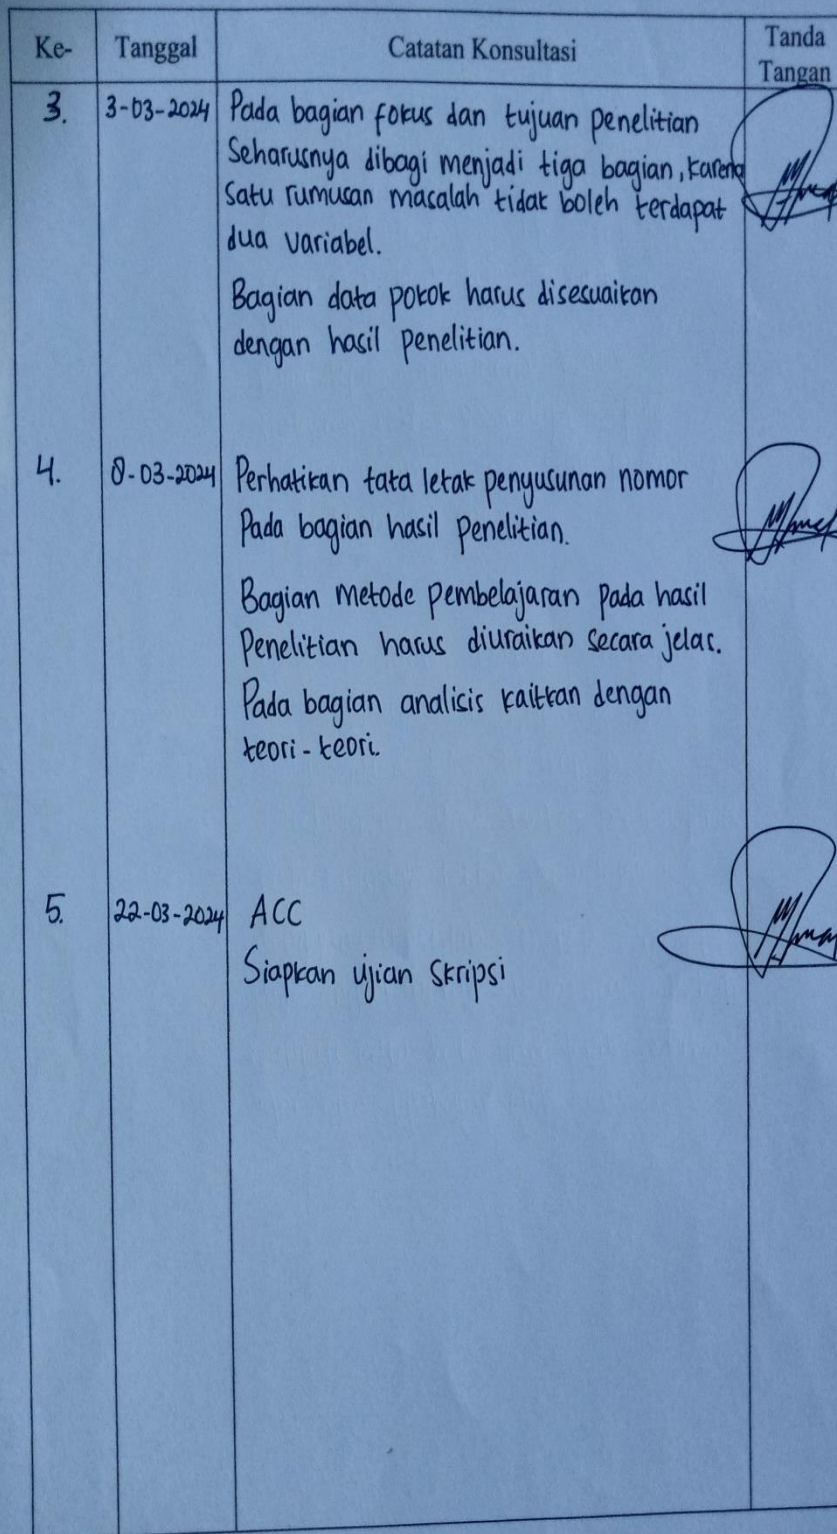 Ke- Tanggal Catatan Konsultasi Tanda Tangan
3. 3-03-2024 Pada bagian fokus dan tujuan penelitian
Seharusnya dibagi menjadi tiga bagian, karena
satu rumusan masalah tidak boleh terdapat
dua variabel.
Bagian data pokok harus disesuaikan
dengan hasil penelitian.
4. 8-03-2024 Perhatikan tata letak penyusunan nomor
Pada bagian hasil penelitian.
Bagian metode pembelajaran pada hasil
Penelitian harus diuraikan secara jelas.
Pada bagian analisis kaitkan dengan
teori-teori.
5. 22-03-2024 ACC
Siapkan ujian skripsi